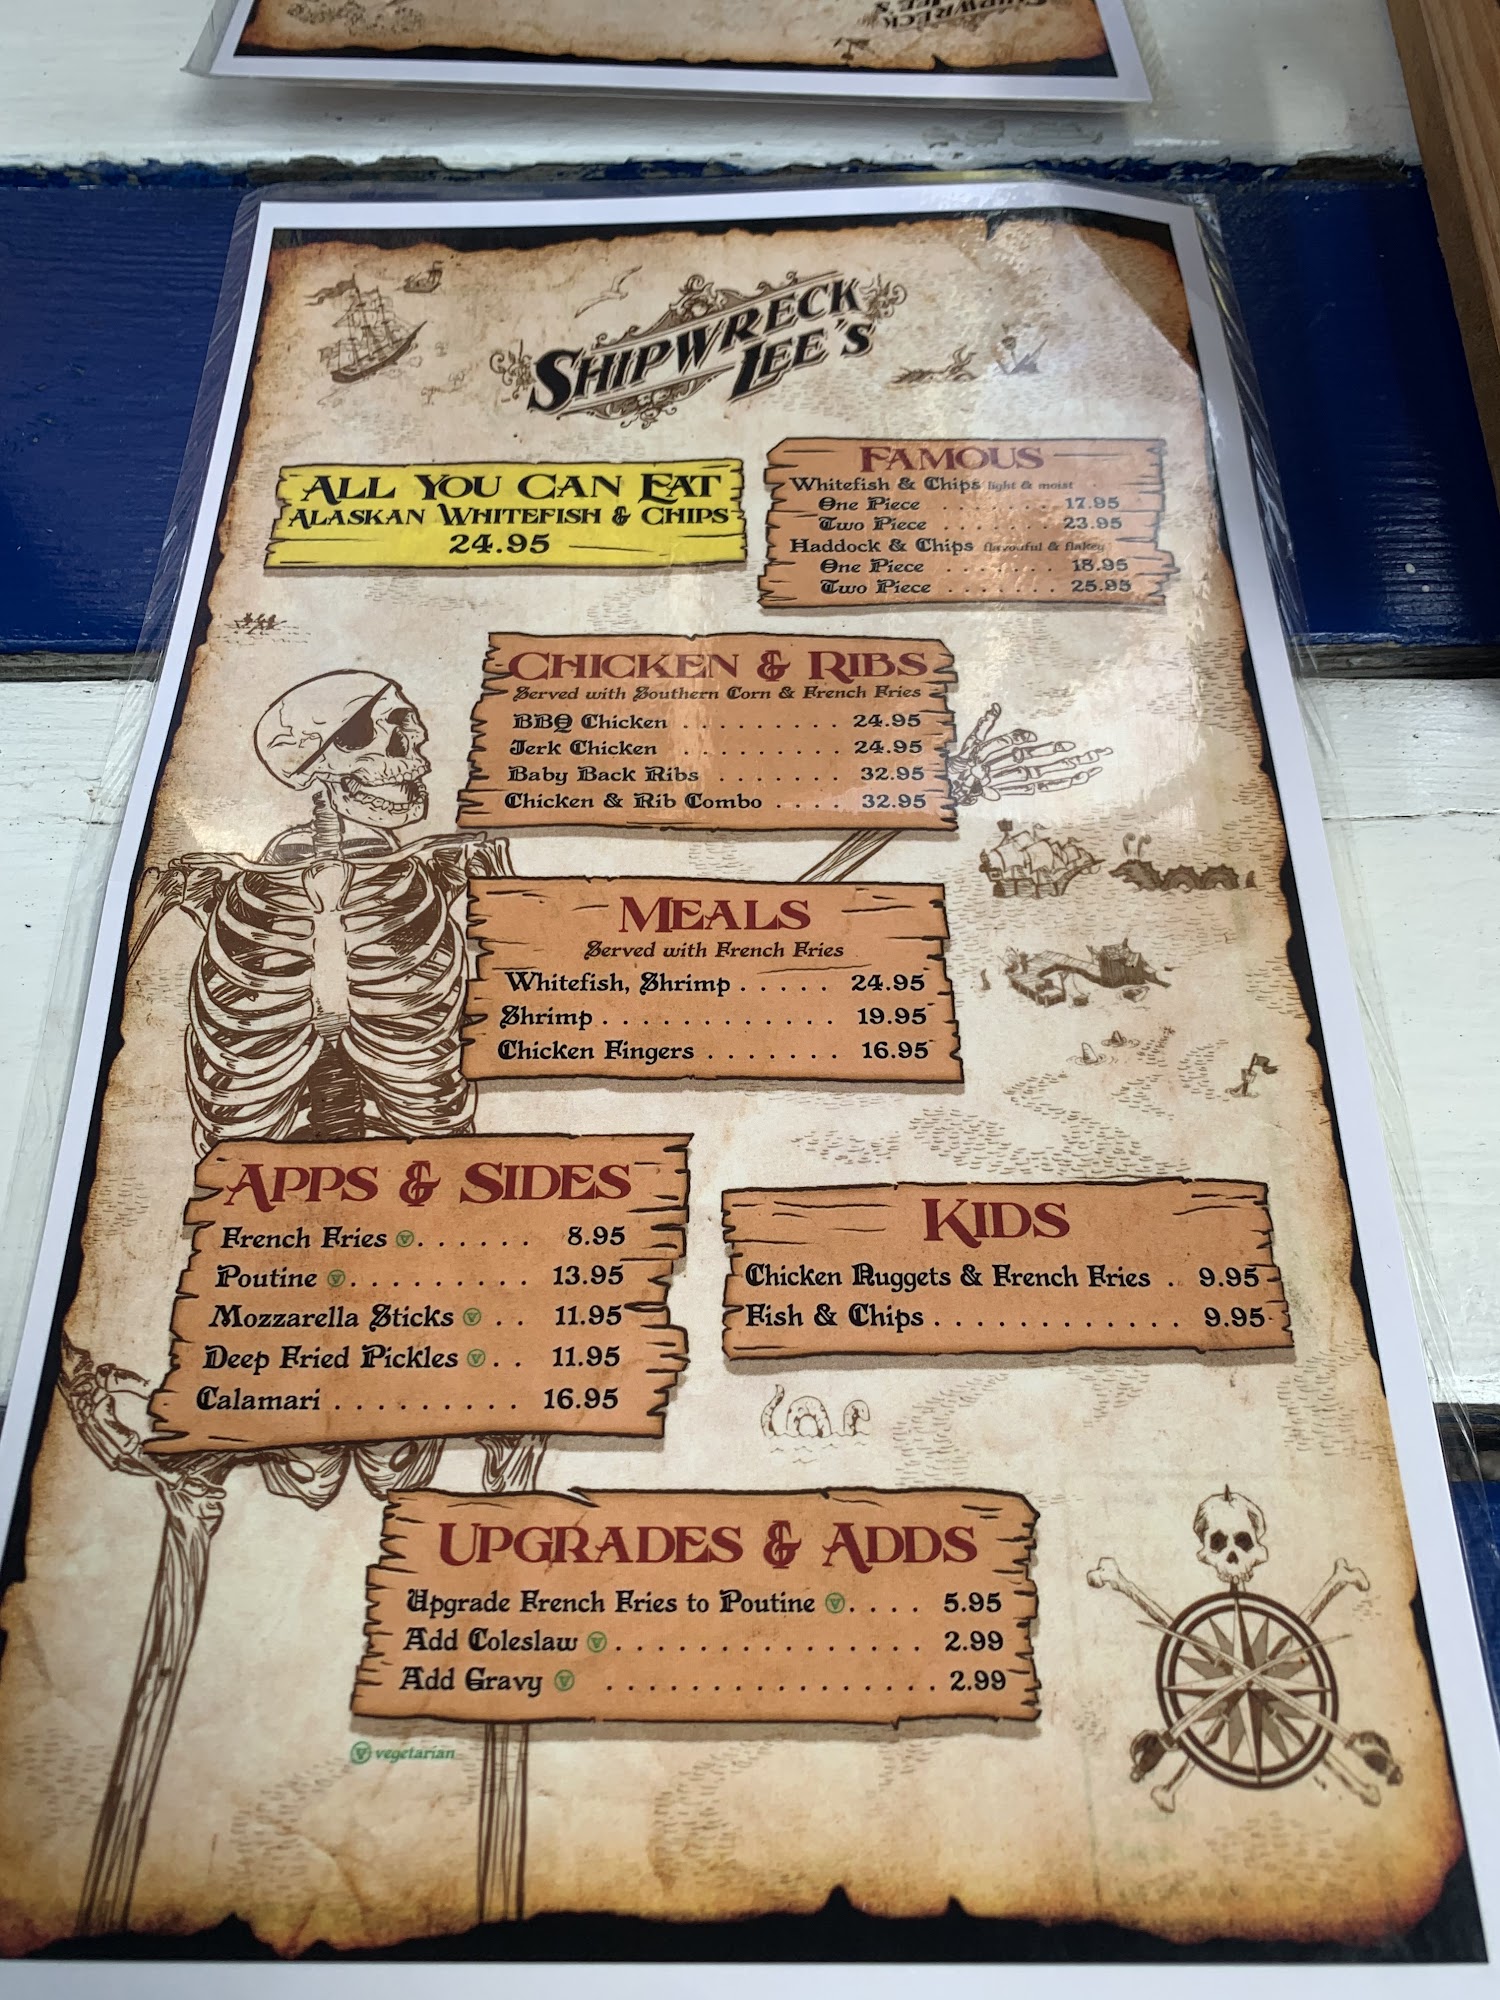 SHIPWRECK
LEE'S
SHIPWRECK
LEE'S
ALL YOU CAN EAT
ALASKAN WHITEFISH & CHIPS
24.95
FAMOUS
Whitefish & Chips light & moist
One Piece . . . . . . . 17.95
Two Piece . . . . . . . 23.95
Haddock & Chips flavouful & flakey
One Piece . . . . . . . 18.95
Two Piece . . . . . . . 25.95
CHICKEN & RIBS
Served with Southern Corn & French Fries
BBQ Chicken . . . . . . . . . 24.95
Jerk Chicken . . . . . . . . . 24.95
Baby Back Ribs . . . . . . . 32.95
Chicken & Rib Combo . . . . 32.95
MEALS
Served with French Fries
Whitefish, Shrimp . . . . . 24.95
Shrimp . . . . . . . . . . . . 19.95
Chicken Fingers . . . . . . . 16.95
APPS & SIDES
French Fries V . . . . . . 8.95
Poutine V . . . . . . . . . 13.95
Mozzarella Sticks V . . 11.95
Deep Fried Pickles V . . 11.95
Calamari . . . . . . . . . 16.95
KIDS
Chicken Nuggets & French Fries . 9.95
Fish & Chips . . . . . . . . . . . . 9.95
UPGRADES & ADDS
Upgrade French Fries to Poutine V . . . . 5.95
Add Coleslaw V . . . . . . . . . . . . . . . . 2.99
Add Gravy V . . . . . . . . . . . . . . . . . 2.99
V vegetarian